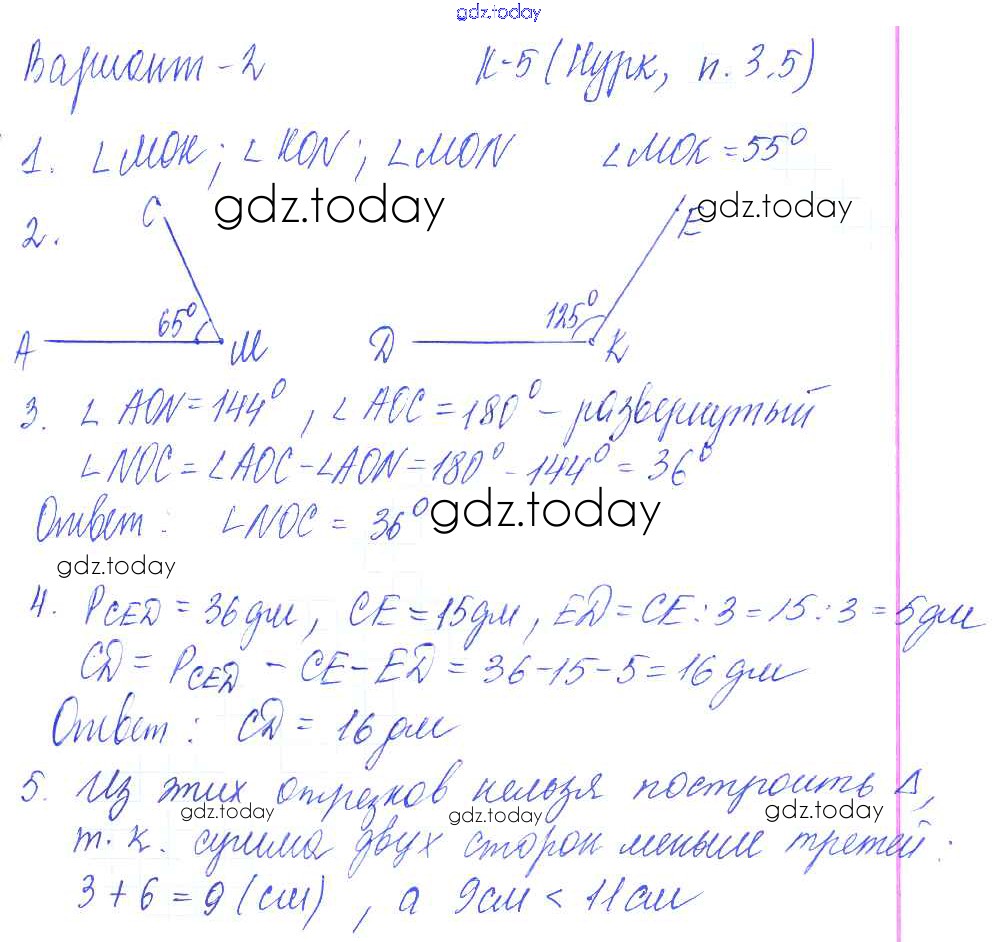 gdz.today
Вариант-2 К-5 (Нурк, п. 3.5)
1. ∠MOK; ∠KON; ∠MON ∠MOK = 55°
gdz.today gdz.today
2. C E
65° 125°
A M D K
3. ∠AON = 144°, ∠AOC = 180° - развернутый
∠NOC = ∠AOC - ∠AON = 180° - 144° = 36°
Ответ: ∠NOC = 36°
gdz.today
gdz.today
4. P_CED = 36 дм, CE = 15 дм, ED = CE : 3 = 15 : 3 = 5 дм
CD = P_CED - CE - ED = 36 - 15 - 5 = 16 дм
Ответ: CD = 16 дм
5. Из этих отрезков нельзя построить Δ,
gdz.today gdz.today gdz.today
т. к. сумма двух сторон меньше третей:
3 + 6 = 9 (см), а 9см < 11см